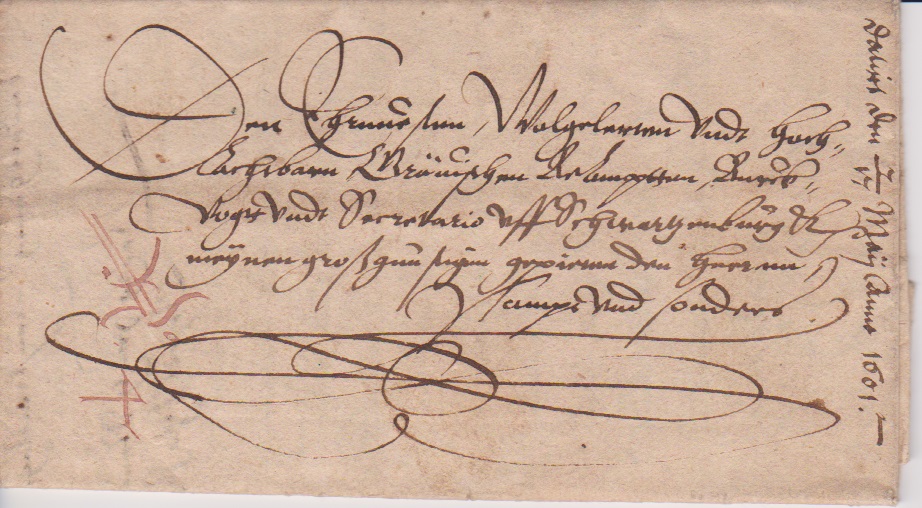 Den Ehrnuesten, Wolgelerten Vndt Hoch-,
Achtbarn Gräuischen Beampten, Burck-,
Vogt Vndt Secretario vff Schwartzenburg &
meynen großgünstigen gepietenden Herrnn,
sampt Vnd sonders
Datirt den 7/17 Maÿ Anno 1601.